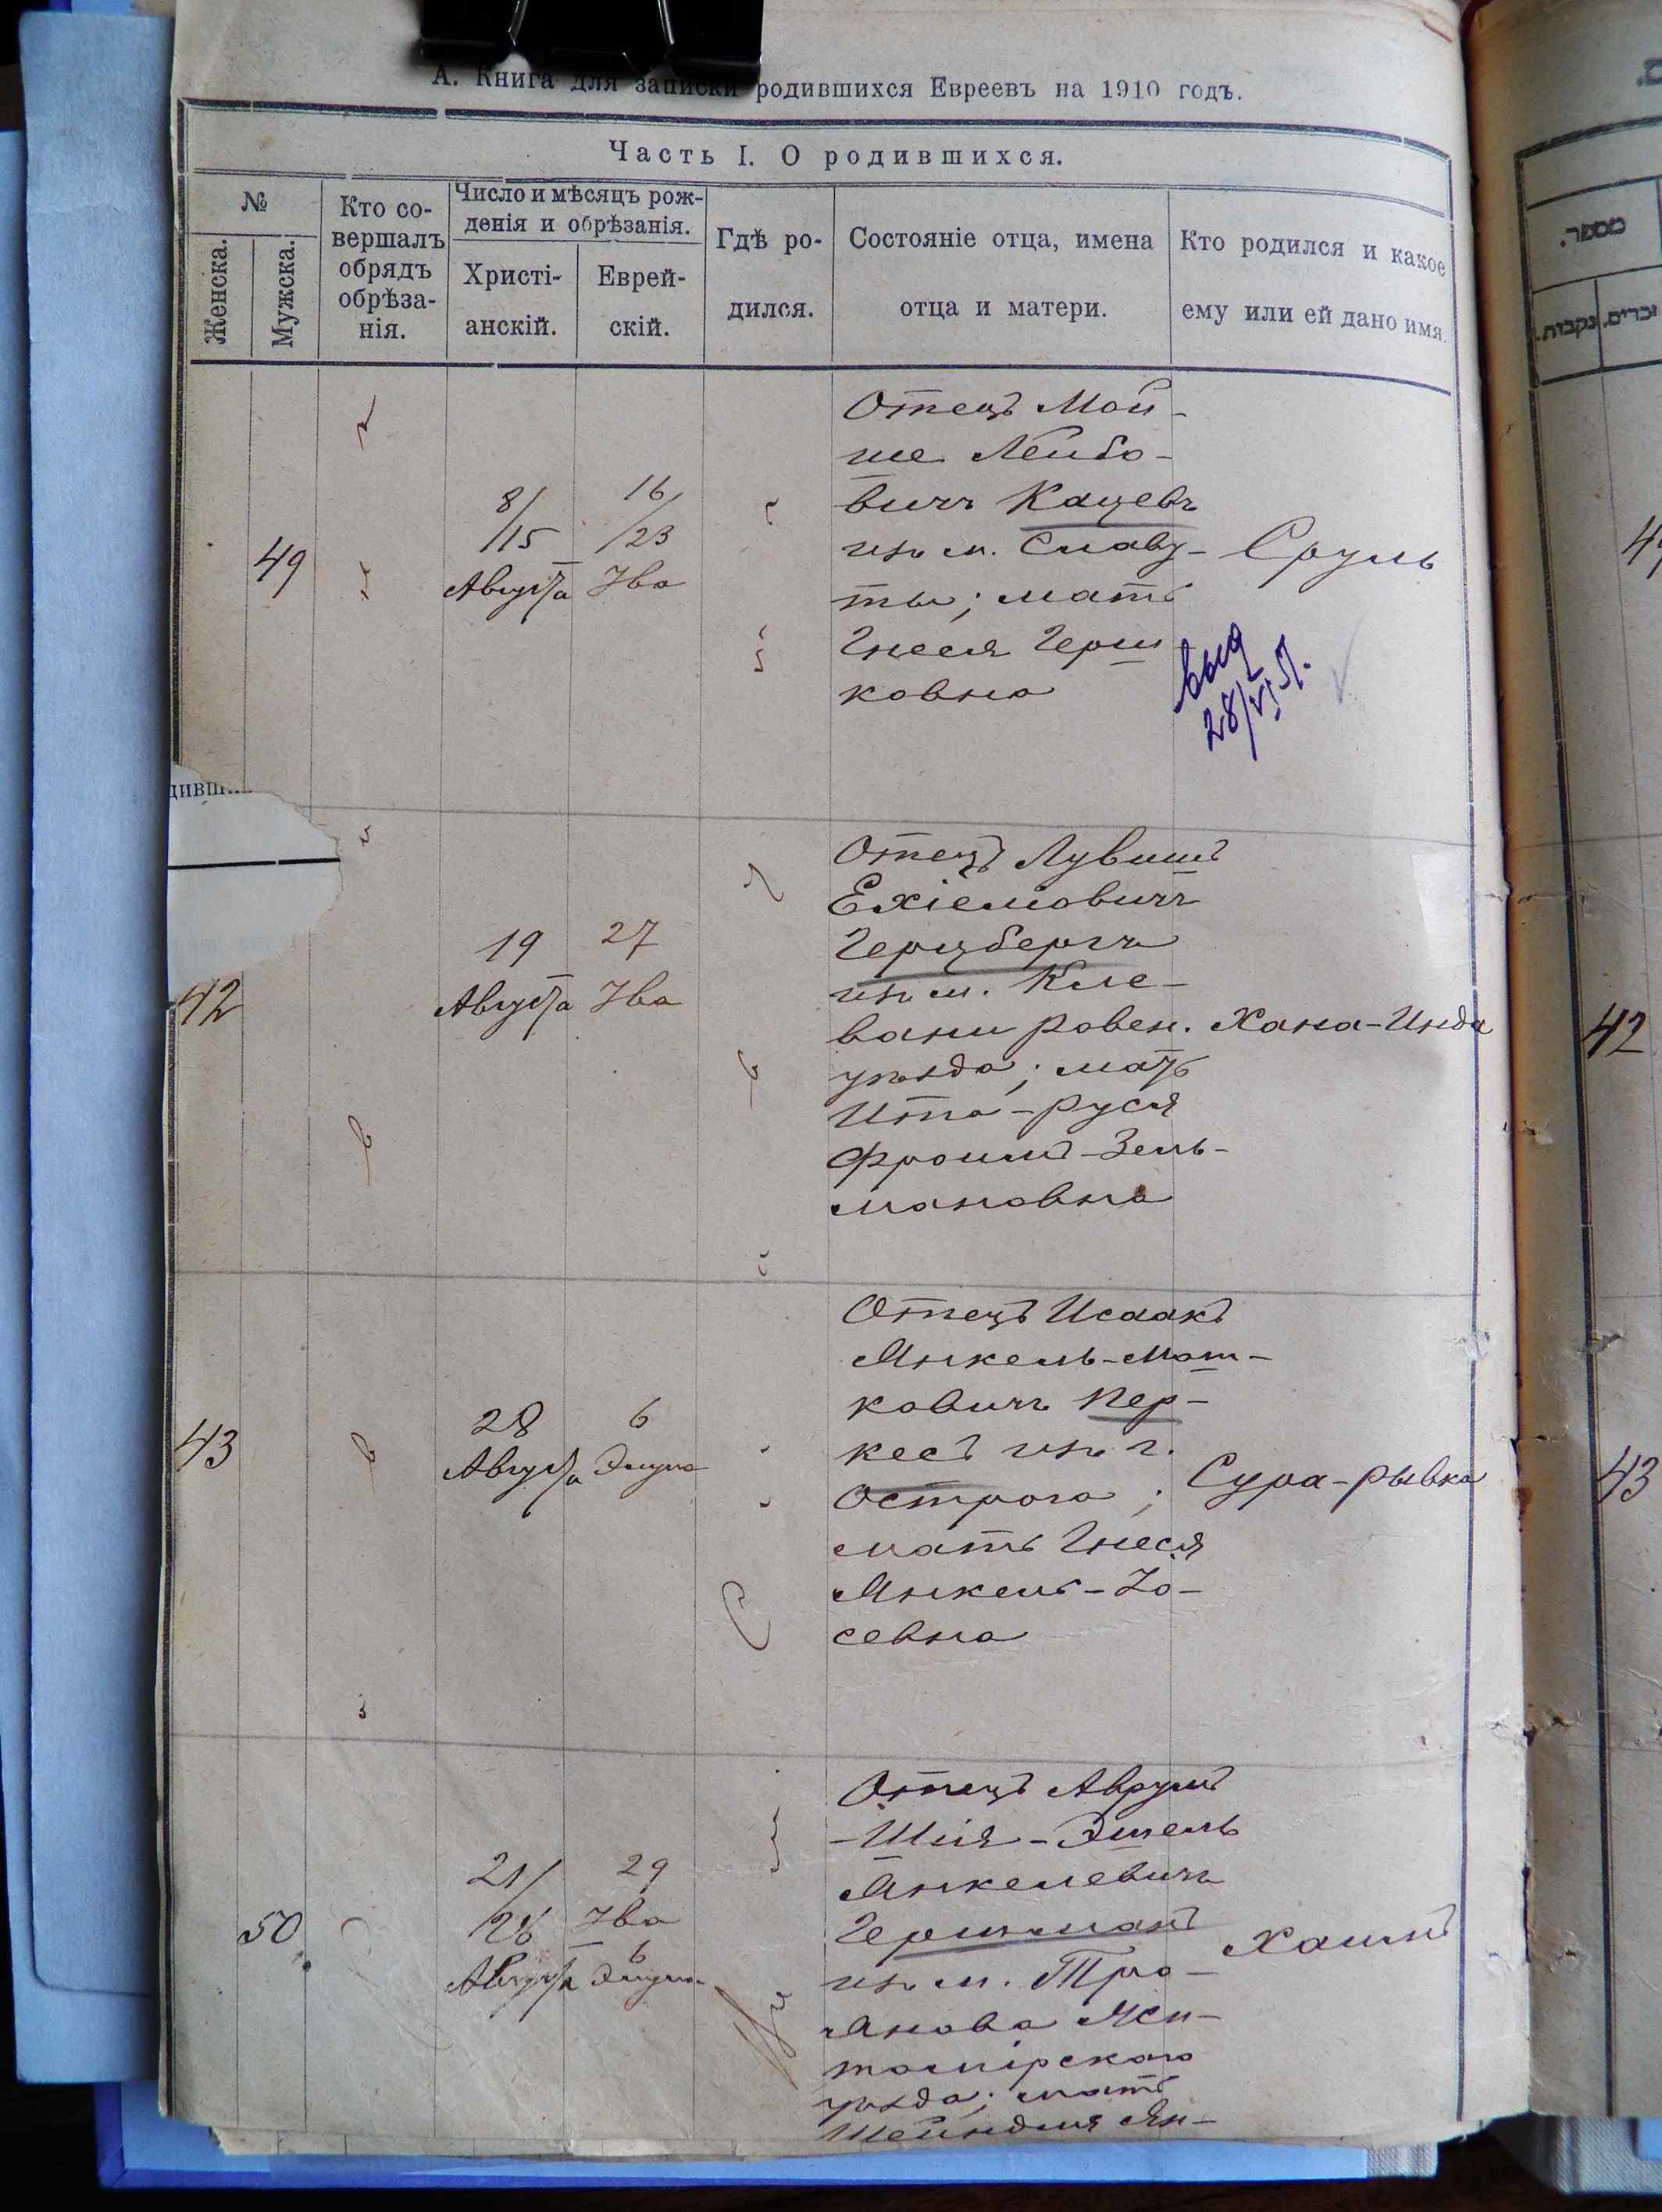 А. Книга для записки родившихся Евреевъ на 1910 годъ.
Часть I. О родившихся.
№
Женска.
Мужска.
Кто со-
вершалъ
обрядъ
обрѣза-
нія.
Число и мѣсяцъ рож-
денія и обрѣзанія.
Христі-
анскій.
Еврей-
скій.
Гдѣ ро-
дился.
Состояніе отца, имена
отца и матери.
Кто родился и какое
ему или ей дано имя.
49
8/
/15
Августа
16/
/23
Ява
Отецъ Мой-
ше Лейбо-
вичъ Кацевъ
изъ м. Славу-
ты; мать
Гнеся Герш
ковна
Сруль
выд
28/VI 51.
дивш
42
19
Августа
27
Ява
Отецъ Лувишъ
Ехіеліовичъ
Герцбергъ
изъ м. Кле-
вани Ровен.
уѣзда; мать
Ита-Руся
Фроимъ-Зель-
мановна
Хана-Инда
43
28
Августа
6
Элула
Отецъ Исаакъ
Янкель-Мот-
ковичъ Пер-
кесъ изъ г.
Острога;
мать Гнеся
Янкель-Іо-
севна
Сура-Рывка
50
21/
/28
Августа
29
Ява
6
Элула
Отецъ Аврумъ
-Шія-Эшель
Янкелевичъ
Гершманъ
изъ м. Тро-
янова Жи-
томірскаго
уѣзда; мать
Шейндля Ян-
Хаимъ
מספר.
נקבות.
זכרים.
42
43